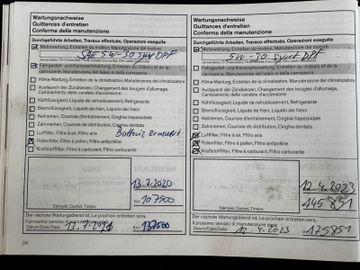 Wartungsnachweise
Quittances d'entretien
Conferma della manutenzione
Durchgeführte Arbeiten, Travaux effectués, Operazioni eseguite
Motorwartung, Entretien du moteur, Manutenzione del motore
5W-30 DPF
Fahrgestell- und Karosseriewartung, Entretien du châssis et de la carrosserie, Manutenzione del telaio e della carrozzeria
Klima-Wartung, Entretien du climatiseur, Manutenzione del climatizzatore
Austausch der Zündkerzen, Changement des bougies d'allumage,
Cambiamento delle candele d'accensione
Kühlflüssigkeit, Liquide de refroidissement, Refrigerante
Bremsflüssigkeit, Liquide de frein, Liquido dei freni
Keilriemen, Courroie d'entraînement, Cinghia trapezoidale
Zahnriemen, Courroie de distribution, Cinghia dentata
Luftfilter, Filtre à air, Filtro aria
Pollenfilter, Filtre à pollen, Filtro antipolline
Kraftstofffilter, Filtre à carburant, Filtro carburante
13.7.2020
Km 107500
Stempel, Cachet, Timbro
Der nächste Wartungsdienst ist, Le prochain entretien sera,
Il prossimo servizio di manutenzione sarà
Datum/Date/Data
137500
24
Wartungsnachweise
Quittances d'entretien
Conferma della manutenzione
Durchgeführte Arbeiten, Travaux effectués, Operazioni eseguite
Motorwartung, Entretien du moteur, Manutenzione del motore
5W-30 Synt DPF
Fahrgestell- und Karosseriewartung, Entretien du châssis et de la carrosserie, Manutenzione del telaio e della carrozzeria
Klima-Wartung, Entretien du climatiseur, Manutenzione del climatizzatore
Austausch der Zündkerzen, Changement des bougies d'allumage,
Cambiamento delle candele d'accensione
Kühlflüssigkeit, Liquide de refroidissement, Refrigerante
Bremsflüssigkeit, Liquide de frein, Liquido dei freni
Keilriemen, Courroie d'entraînement, Cinghia trapezoidale
Zahnriemen, Courroie de distribution, Cinghia dentata
Luftfilter, Filtre à air, Filtro aria
Pollenfilter, Filtre à pollen, Filtro antipolline
Kraftstofffilter, Filtre à carburant, Filtro carburante
12.4.2023
145851
Stempel, Cachet, Timbro
Der nächste Wartungsdienst ist, Le prochain entretien sera,
Il prossimo servizio di manutenzione sarà
Datum/Date/Data 12.4.2023 Km 175851